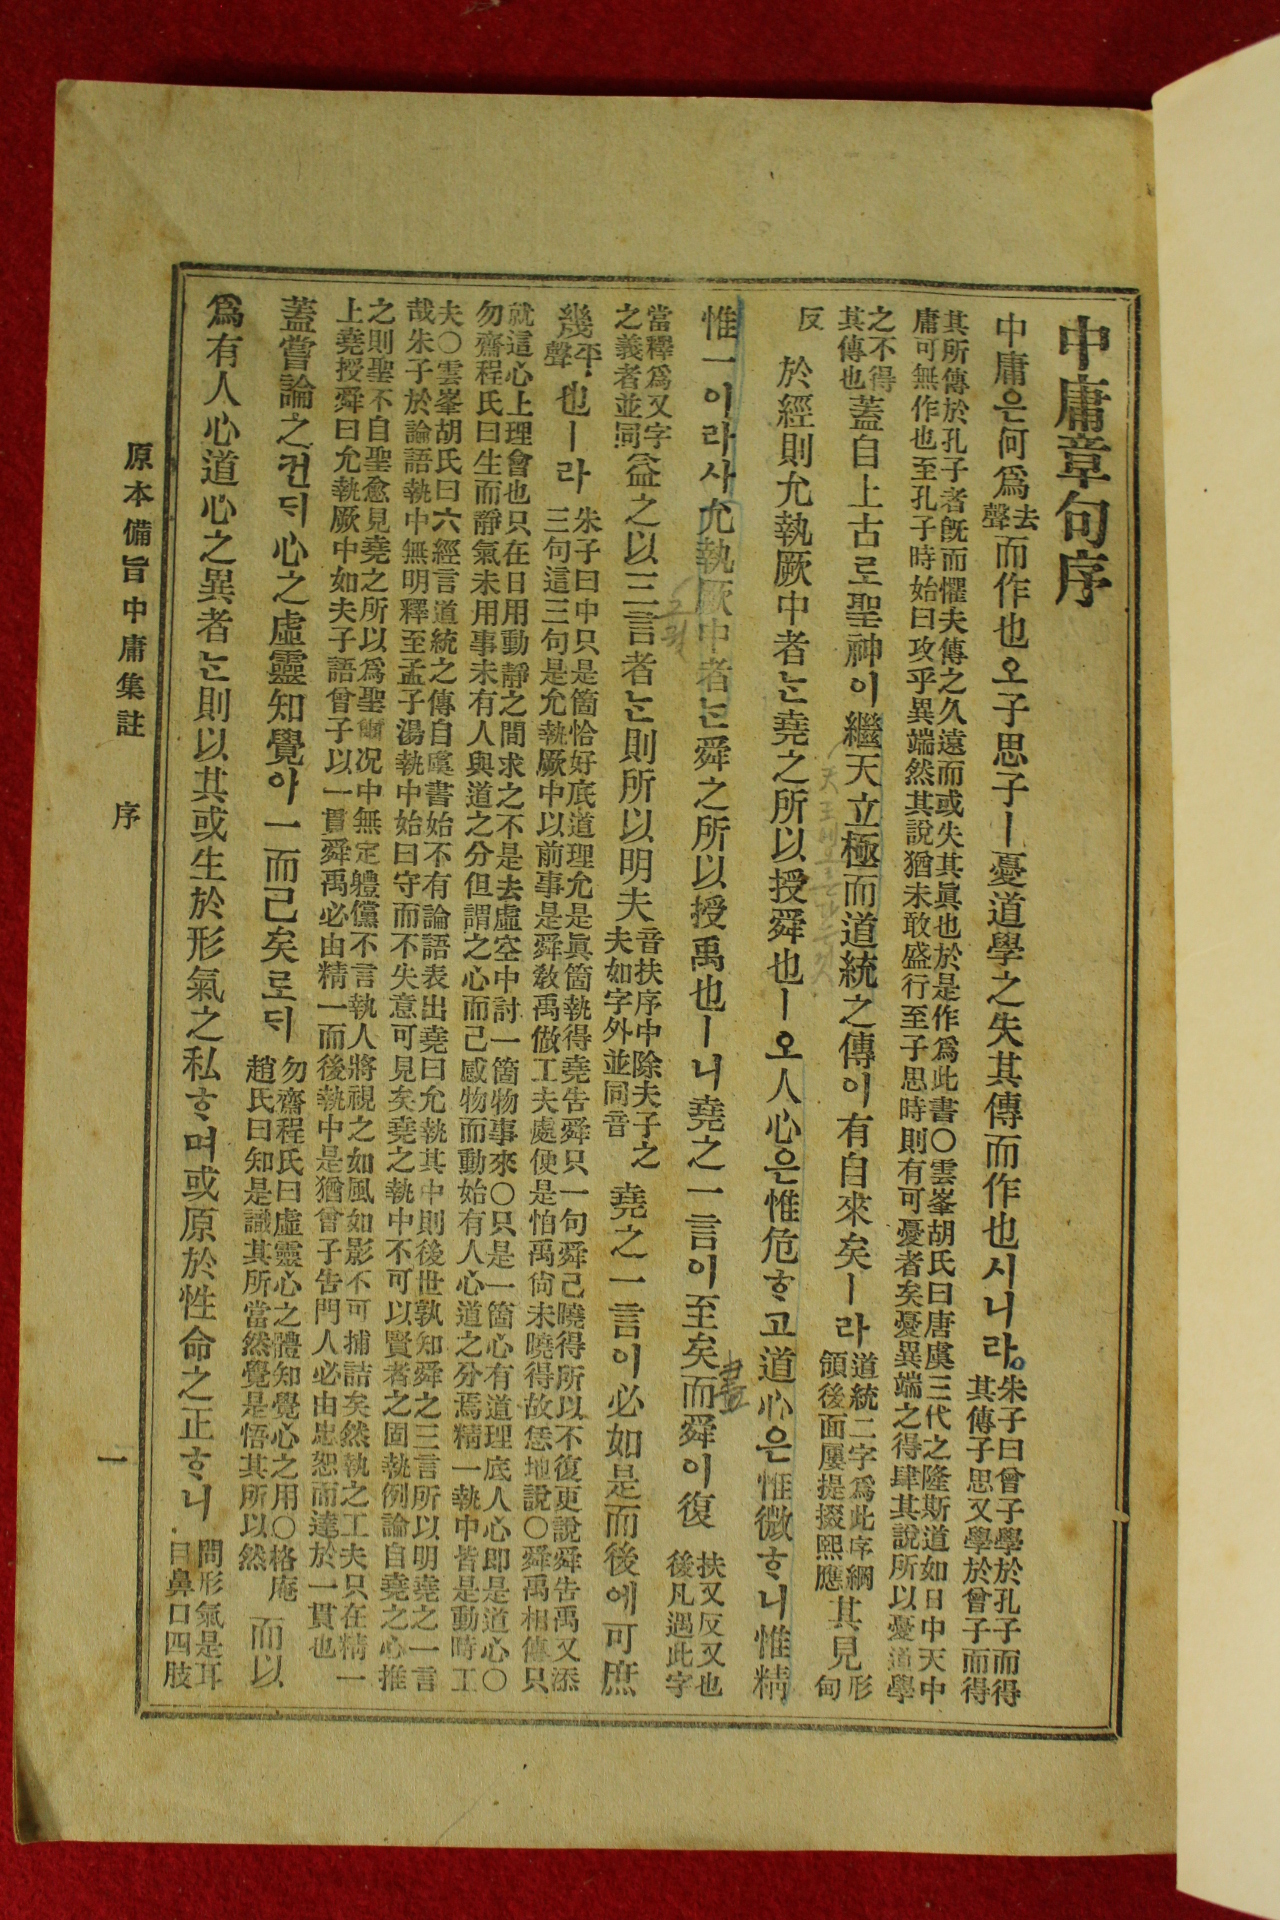 中庸章句序
中庸은何爲去聲而作也오子思子ㅣ憂道學之失其傳而作也시니라朱子曰曾子學於孔子而得
其傳子思又學於曾子而得
其所傳於孔子者旣而懼夫傳之久遠而或失其眞也於是作爲此書○雲峯胡氏曰唐虞三代之隆斯道如日中天中
庸可無作也至孔子時始曰攻乎異端然其說猶未敢盛行至子思時則有可憂者矣憂異端之得肆其說所以憂道學
之不得
其傳也
蓋自上古로聖神이繼天立極而道統之傳이有自來矣ㅣ라
道統二字爲此序綱
領後面屢提掇照應
其見形
甸
反
於經則允執厥中者는堯之所以授舜也ㅣ오人心은惟危ᄒᆞ고道心은惟微ᄒᆞ니惟精
惟一이라사允執厥中者는舜之所以授禹也ㅣ니堯之一言이至矣而舜이復
扶又反又也
後凡遇此字
當釋爲又字
之義者並同
益之以三言者는則所以明夫
音扶序中除夫子之
夫如字外並同音
堯之一言이必如是而後에可庶
幾平聲也ㅣ라
朱子曰中只是箇恰好底道理允是眞箇執得堯告舜只一句舜已曉得所以不復更說舜告禹又添
三句這三句是允執厥中以前事是舜敎禹倣工夫處便是怕禹尙未曉得故恁地說○舜禹相傳只
就這心上理會也只在日用動靜之間求之不是去虛空中討一箇物事來○只是一箇心有道理底人心即是道心○
勿齋程氏曰生而靜氣未用事未有人與道之分但謂之心而已感物而動始有人心道之分焉精一執中皆是動時工
夫○雲峯胡氏曰六經言道統之傳自虞書始不有論語表出堯曰允執其中則後世孰知舜之三言所以明堯之一言
哉朱子於論語執中無明釋至孟子湯執中始曰守而不失意可見矣堯之執中不可以賢者之固執例論自堯之心推
之則聖不自聖愈見堯之所以爲聖爾况中無定體儻不言執人將視之如風如影不可捕詰矣然執之工夫只在精一
上堯授舜曰允執厥中如夫子語曾子以一貫舜禹必由精一而後執中是猶曾子告門人必由忠恕而達於一貫也
蓋嘗論之컨ᄃᆡ心之虛靈知覺아一而已矣로ᄃᆡ
勿齋程氏曰虛靈心之體知覺心之用○格庵
趙氏曰知是識其所當然覺是悟其所以然
而以
爲有人心道心之異者는則以其或生於形氣之私ᄒᆞ며或原於性命之正ᄒᆞ니
問形氣是耳
目鼻口四肢
原本備旨中庸集註　序　一